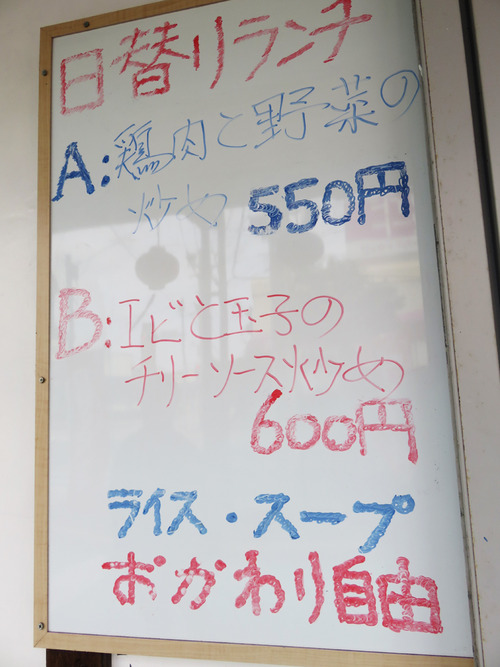 日替りランチ
A:鶏肉と野菜の
炒め 550円
B:エビと玉子の
チリーソース炒め
600円
ライス・スープ
おかわり自由